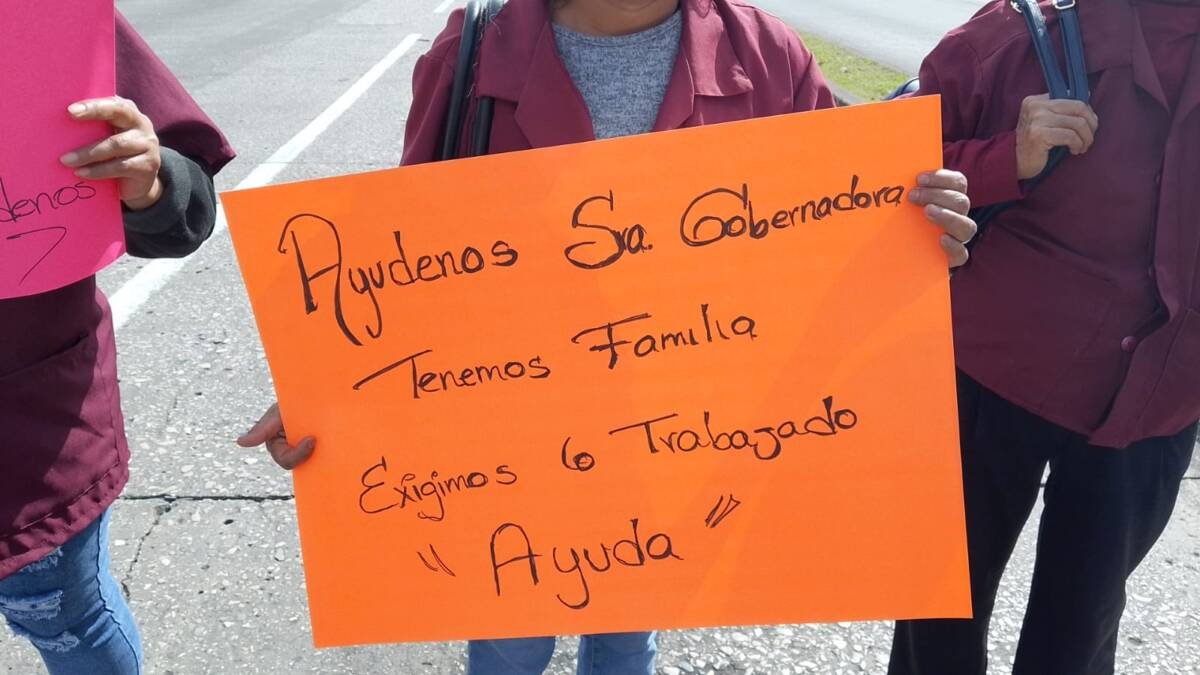 denos
Ayudenos Sra. Gobernadora
Tenemos Familia
Exigimos lo Trabajado
"Ayuda"